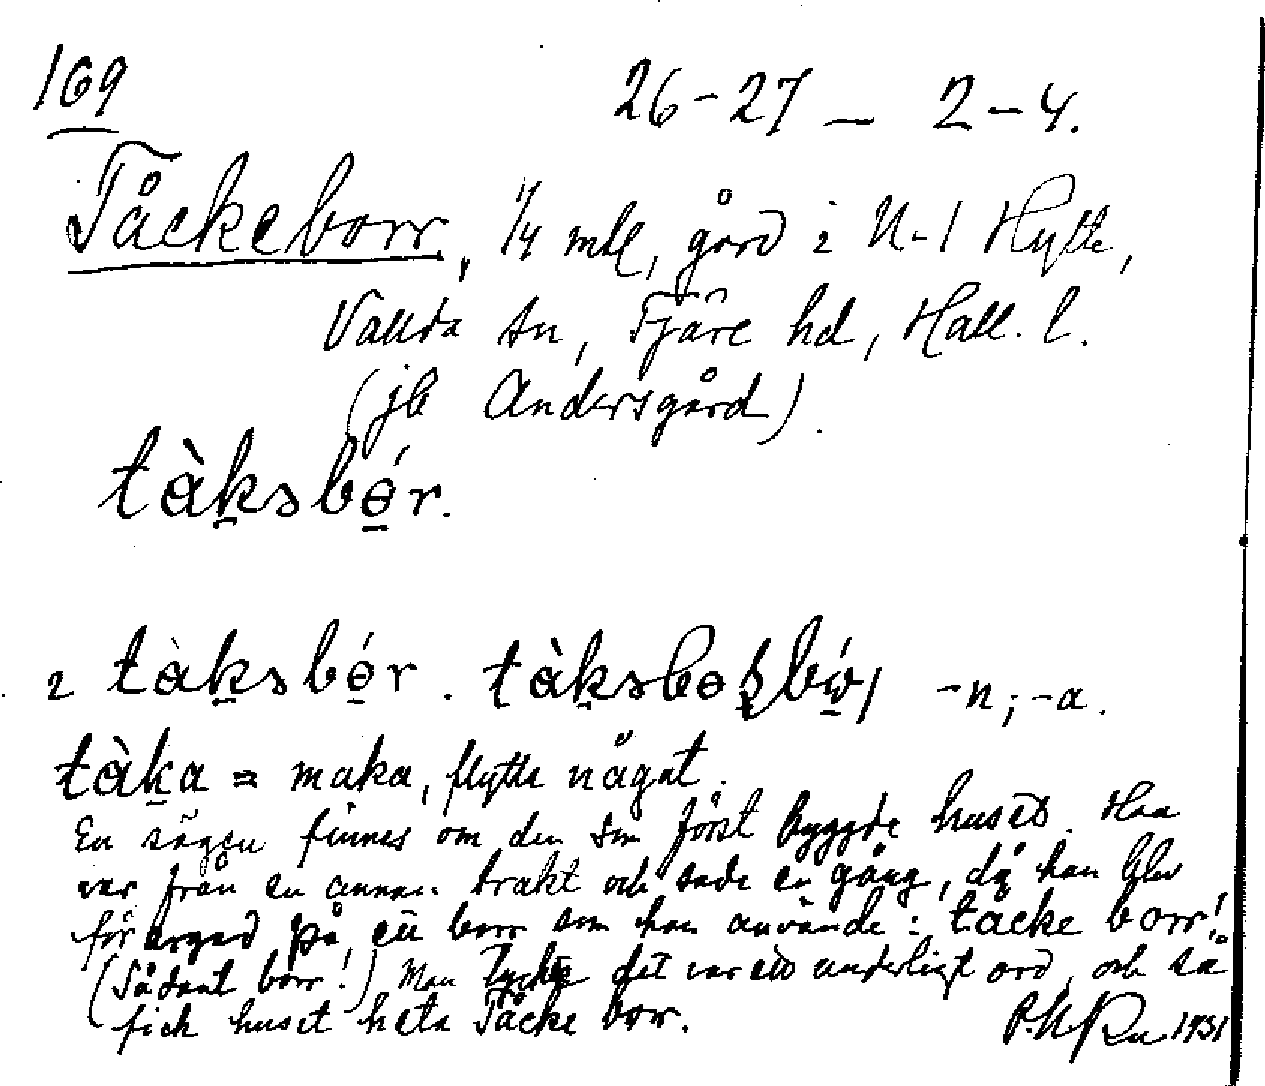 169
26-27 — 2-4.
Tåckeborr, 1/4 mtl, gård i N-1 Hytte,
Vallda sn, Fjäre hd, Hall. l.
(jb Andersgård).
tàk̠sbɵ́r.
2 tàk̠sbɵ́r. -n; -a.
tàk̠a = maka, flytta något.
En sägen finnes om den som först byggde huset. Han
var från en annan trakt och sade en gång, då han blev
förargad på en borr som han använde: tacke borr!
(Sådant borr!) Man tyckte det var ett underligt ord, och så
fick huset heta Tåcke borr.
1931